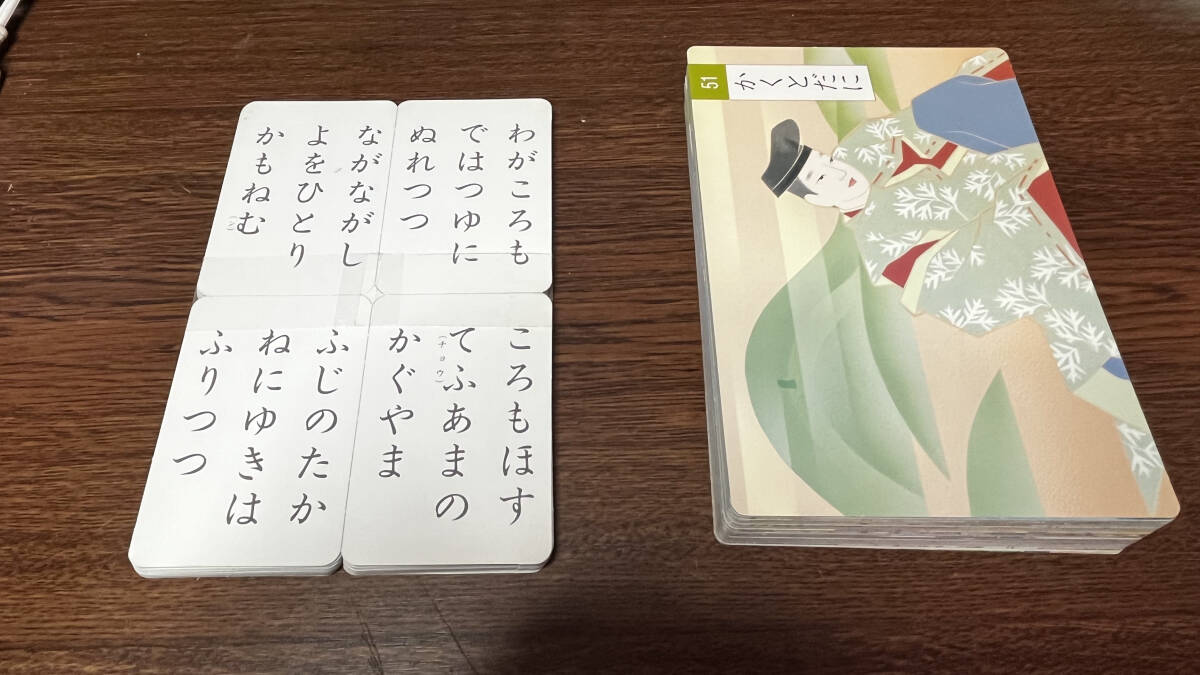 わがころも
ではつゆに
ぬれつつ
ながながし
よをひとり
かもねむ
(ン)
ころもほす
てふあまの
(チョウ)
かぐやま
ふじのたか
ねにゆきは
ふりつつ
51
かくとだに